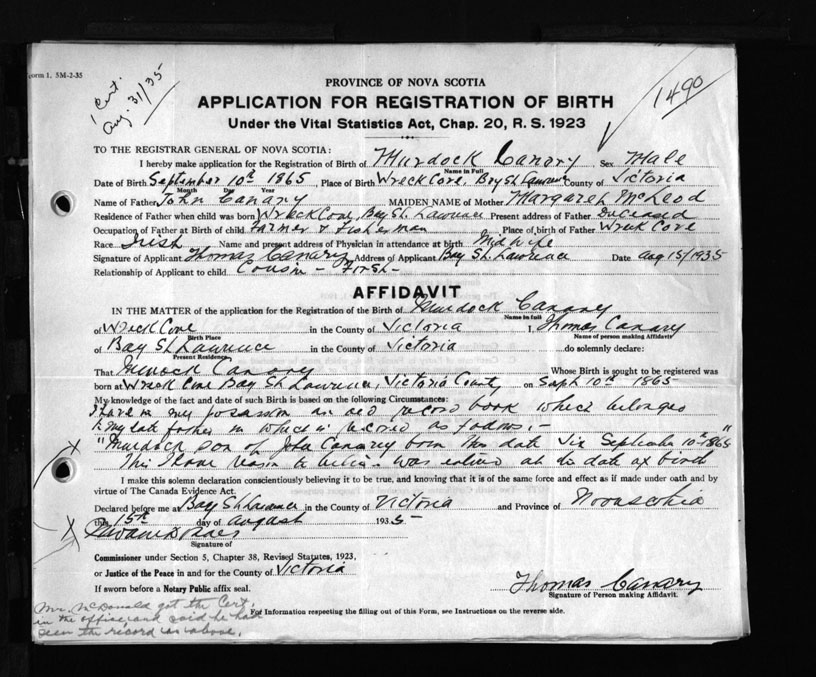 orm 1. 5M-2-35
1 Cert.
Aug. 31/35
1490
PROVINCE OF NOVA SCOTIA
APPLICATION FOR REGISTRATION OF BIRTH
Under the Vital Statistics Act, Chap. 20, R. S. 1923
TO THE REGISTRAR GENERAL OF NOVA SCOTIA:
I hereby make application for the Registration of Birth of Murdock Canary Sex Male
Name in Full
Date of Birth September 10th 1865, Place of Birth Wreck Cove, Bay St. Lawrence County of Victoria
Month Day Year
Name of Father John Canary MAIDEN NAME of Mother Margaret McLeod
Residence of Father when child was born Wreck Cove, Bay St. Lawrence Present address of Father Deceased
Occupation of Father at Birth of child Farmer & Fisherman Place of birth of Father Wreck Cove
Race Irish Name and present address of Physician in attendance at birth Midwife
Signature of Applicant Thomas Canary Address of Applicant Bay St. Lawrence Date Aug 15/1935
Relationship of Applicant to child Cousin - First -
AFFIDAVIT
IN THE MATTER of the application for the Registration of the Birth of Murdock Canary
Name in full
of Wreck Cove in the County of Victoria I, Thomas Canary
Birth Place Name of person making Affidavit
of Bay St Lawrence in the County of Victoria do solemnly declare:
Present Residence
That Canary Whose Birth is sought to be registered was
born at Wreck Cove Bay St Lawrence, Victoria County on Sept 10th 1865
My knowledge of the fact and date of such Birth is based on the following Circumstances:
I have in my possession an old record book which belonged
to my late father in which is record as follows:-
"Murdock son of John Canary born this date September 10th 1865"
This I have reason to believe was entered at the date of birth
I make this solemn declaration conscientiously believing it to be true, and knowing that it is of the same force and effect as if made under oath and by
virtue of The Canada Evidence Act.
Declared before me at Bay St Lawrence in the County of Victoria and Province of Nova Scotia
this 15th day of August 1935
Signature of
Commissioner under Section 5, Chapter 38, Revised Statutes, 1923,
or Justice of the Peace in and for the County of Victoria
If sworn before a Notary Public affix seal.
Thomas Canary
Signature of Person making Affidavit.
Mr. McDonald got the Cert.
in the office, and said he had
seen the record as above.
For Information respecting the filling out of this Form, see Instructions on the reverse side.